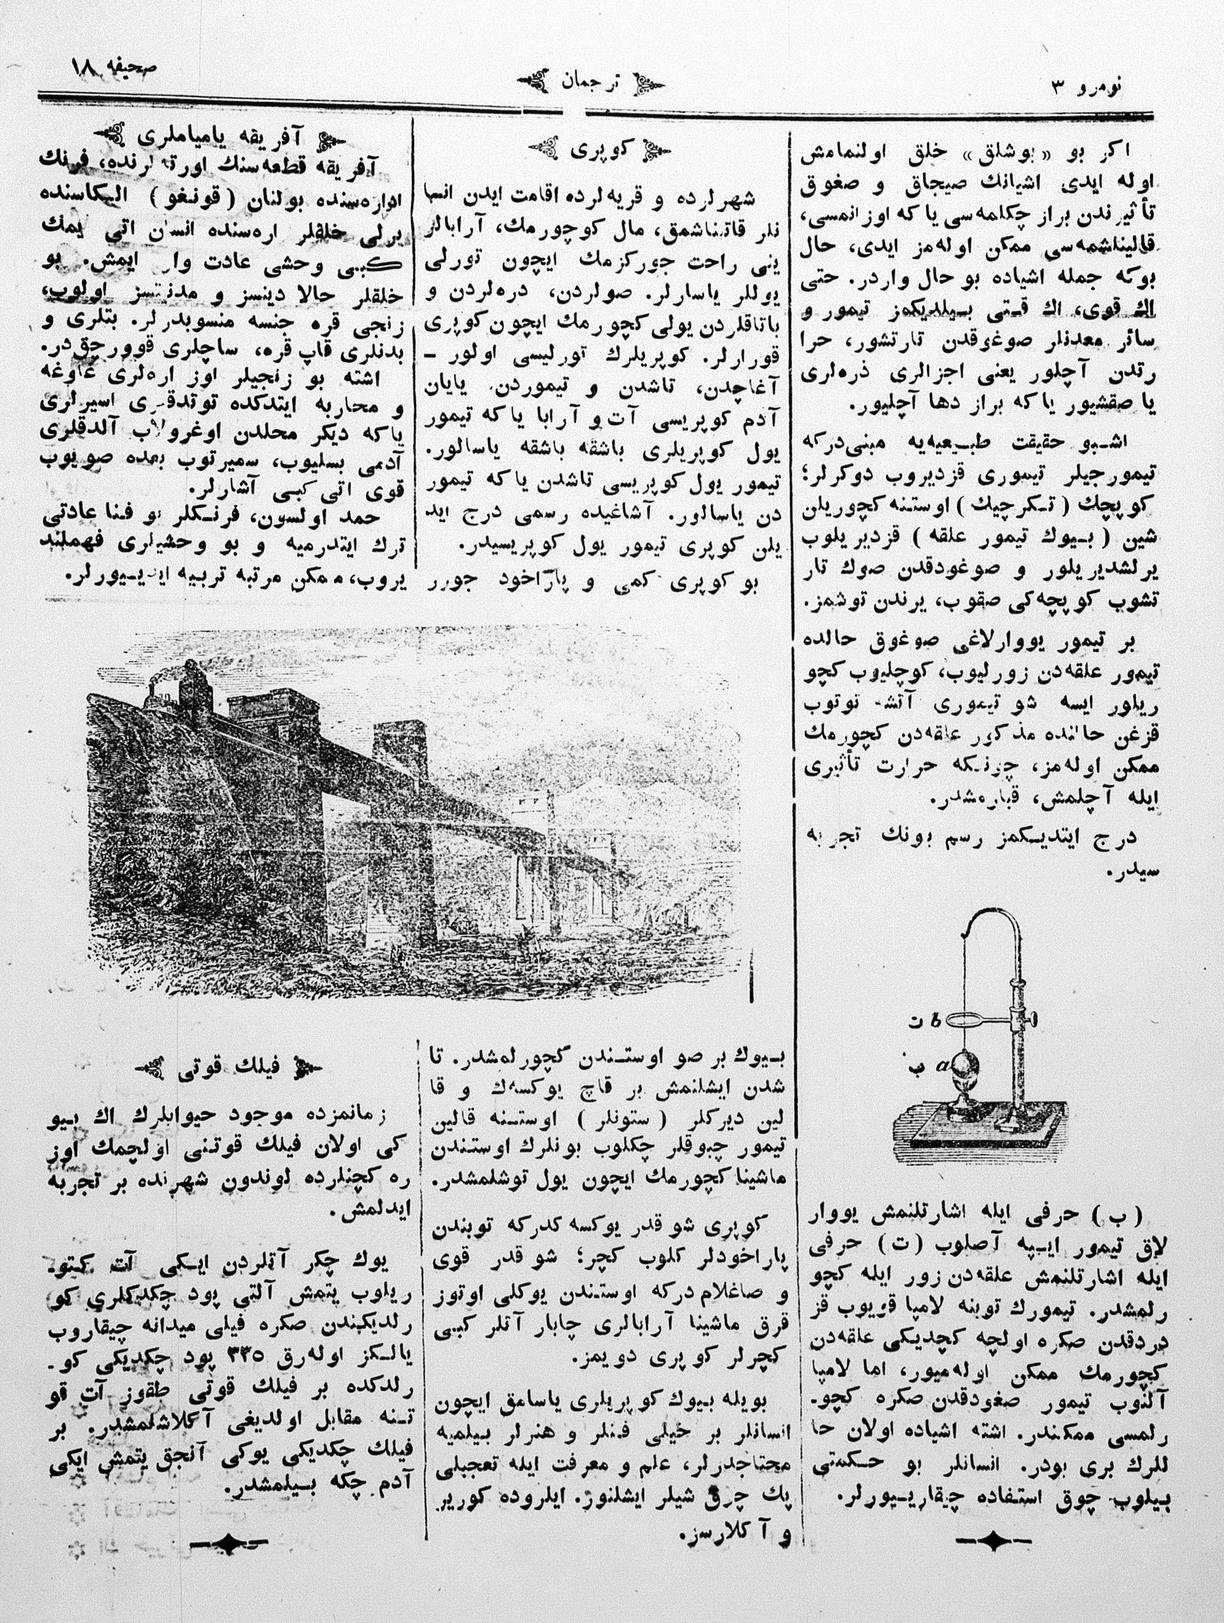 نومرو ٣
ترجمان
صحیفه ١٨
اکر بو «بوشلق» خلق اولنمامش
اوله ایدی اشیانك صیجاق و صغوق
تأثیرندن براز چکلمه‌سی یا که اوزانمسی،
قالیناشمه‌سی ممکن اوله‌مز ایدی، حال
بوکه جمله اشیاده بو حال واردر. حتی
اك قوی، اك قتی بیلدیکمز تیمور و
سائر معدنلر صوغوقدن تارتشور، حرا
رتدن آچلور یعنی اجزالری ذره‌لری
یا صقشیور یا که براز دها آچلیور.
اشبو حقیقت طبیعیه‌یه مبنی‌درکه
تیمورجیلر تیموری قزدیروب دوکرلر؛
کوپچك (تکرچیك) اوستنه کچوریلن
شین (بیوك تیمور علقه) قزدیریلوب
یرلشدیریلور و صوغودقدن صوك تار
تشوب کوپچه‌کی صقوب، یرندن توشمز.
بر تیمور یووارلاغی صوغوق حالده
تیمور علقه‌دن زورلیوب، کوچلیوب کچو
ریلور ایسه شو تیموری آتشه توتوب
قزغن حالنده مذکور علقه‌دن کچورمك
ممکن اوله‌مز، چونکه حرارت تأثیری
ایله آچلمش، قبارمشدر.
درج ایتدیکمز رسم بونك تجربه
سیدر.
ت b
ب a
(ب) حرفی ایله اشارتلنمش یووار
لاق تیمور ایپه آصلوب (ت) حرفی
ایله اشارتلنمش علقه‌دن زور ایله کچو
رلمشدر. تیمورك توبنه لامپا قویوب قز
دردقدن صکره اولچه کچدیکی علقه‌دن
کچورمك ممکن اوله‌میور، اما لامپا
آلنوب تیمور صغودقدن صکره کچو-
رلمسی ممکندر. اشته اشیاده اولان حا
للرك بری بودر. انسانلر بو حکمتی
بیلوب چوق استفاده چیقاریيورلر.
کوپری
شهرلرده و قریه‌لرده اقامت ایدن انسا
نلر قاتناشمق، مال کوچورمك، آرابالر
ینی راحت جورکزمك ایچون تورلی
یوللر یاسارلر. صولردن، دره‌لردن و
باتاقلردن یولی کچورمك ایچون کوپری
قورارلر. کوپریلرك تورلیسی اولور -
آغاچدن، تاشدن و تیموردن. یایان
آدم کوپریسی آت و آرابا یا که تیمور
یول کوپریلری باشقه باشقه یاسالور.
تیمور یول کوپریسی تاشدن یا که تیمور
دن یاسالور. آشاغیده رسمی درج اید
یلن کوپری تیمور یول کوپریسیدر.
بو کوپری کمی و پاراخود جورر
بیوك بر صو اوستندن کچورلمشدر. تا
شدن ایشلنمش بر قاچ یوکسه‌ك و قا
لین دیرکلر (ستونلر) اوستنه قالین
تیمور چبوقلر چکلوب بونلرك اوستندن
ماشینا کچورمك ایچون یول توشلمشدر.
کوپری شو قدر یوکسه‌کدرکه توبندن
پاراخودلر کلوب کچر؛ شو قدر قوی
و صاغلام درکه اوستندن یوکلی اوتوز
قرق ماشینا آرابالری چابار آتلر کبی
کچرلر کوپری دویمز.
بویله بیوك کوپریلری یاسامق ایچون
انسانلر بر خیلی فنلر و هنرلر بیلمیه
محتاجدرلر، علم و معرفت ایله تعجبلی
پك چوق شیلر ایشلنور. ایلروده کوریر
و آکلارسز.
آفریقه یامیاملری
آفریقه قطعه‌سنك اورته‌لرنده، فرنك
اداره‌سنده بولنان (قونغو) الکاسنده
یرلی خلقلر اره‌سنده انسان اتی یمك
کبی وحشی عادت وار ایمش. بو
خلقلر حالا دینسز و مدنیتسز اولوب،
زنجی قره جنسه منسوبدرلر. بتلری و
بدنلری قاپ قره، ساچلری قوورچق‌در.
اشته بو زنجیلر اوز اره‌لری غاوغه
و محاربه ایتدکده توتدقلری اسیرلری
یا که دیکر محلدن اوغرولاب آلدقلری
آدمی بسلیوب، سمیرتوب بعده صویوب
قوی اتی کبی آشارلر.
حمد اولسون، فرنکلر بو فنا عادتی
ترك ایتدرمیه و بو وحشیلری فهملند
یروب، ممکن مرتبه تربیه ایدیيورلر.
فیلك قوتی
زمانمزده موجود حیوانلرك اك بیو
کی اولان فیلك قوتنی اولچمك اوز
ره کچنلرده لوندون شهرنده بر تجربه
ایدلمش.
یوك چکر آتلردن ایکی آت کیتو-
ریلوب یتمش آلتی پود چکدکلری کو
رلدیکندن صکره فیلی میدانه چیقاروب
یالکز اوله‌رق ٣٣٥ پود چکدیکی کو-
رلدکده بر فیلك قوتی طقوز آت قو
تنه مقابل اولدیغی آکلاشلمشدر. بر
فیلك چکدیکی یوکی آنجق یتمش ایکی
آدم چکه بیلمشدر.